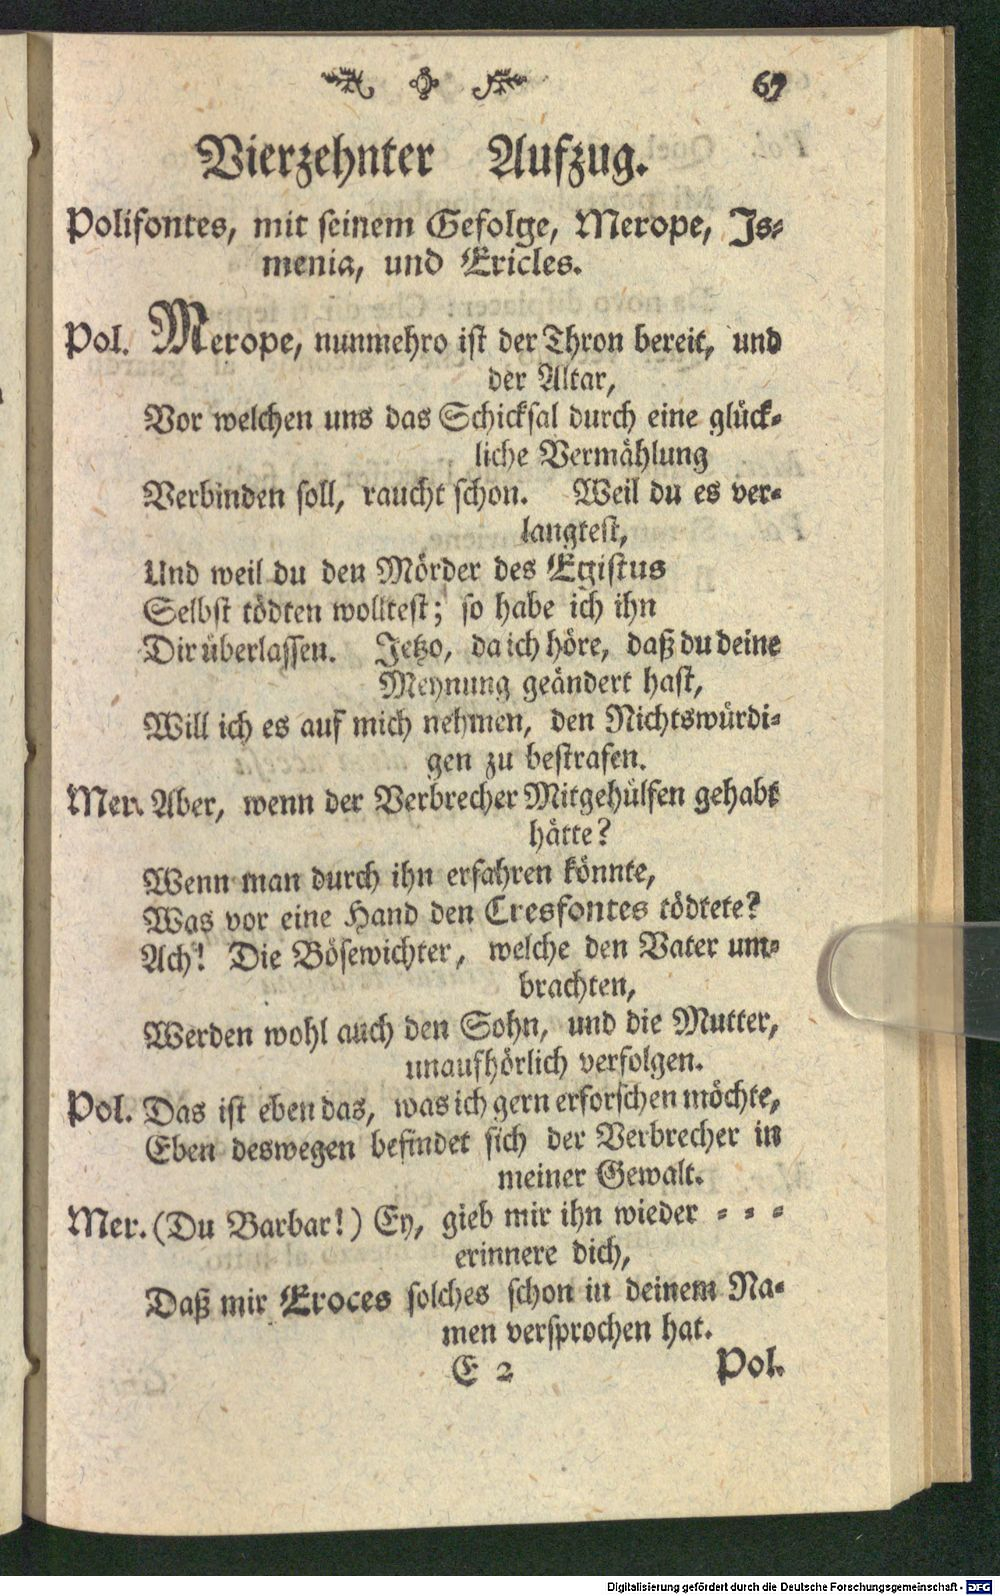 67
Vierzehnter Aufzug.
Polifontes, mit seinem Gefolge, Merope, Is-
menia, und Ericles.
Pol. Merope, nunmehro ist der Thron bereit, und
der Altar,
Vor welchen uns das Schicksal durch eine glück-
liche Vermählung
Verbinden soll, raucht schon. Weil du es ver-
langtest,
Und weil du den Mörder des Egistus
Selbst tödten wolltest; so habe ich ihn
Dir überlassen. Jetzo, da ich höre, daß du deine
Meynung geändert hast,
Will ich es auf mich nehmen, den Nichtswürdi-
gen zu bestrafen.
Mer. Aber, wenn der Verbrecher Mitgehülfen gehabt
hätte?
Wenn man durch ihn erfahren könnte,
Was vor eine Hand den Cresfontes tödtete?
Ach! Die Bösewichter, welche den Vater um-
brachten,
Werden wohl auch den Sohn, und die Mutter,
unaufhörlich verfolgen.
Pol. Das ist eben das, was ich gern erforschen möchte,
Eben deswegen befindet sich der Verbrecher in
meiner Gewalt.
Mer. (Du Barbar!) Ey, gieb mir ihn wieder - - -
erinnere dich,
Daß mir Eroces solches schon in deinem Na-
men versprochen hat.
E 2 Pol.
Digitalisierung gefördert durch die Deutsche Forschungsgemeinschaft - DFG